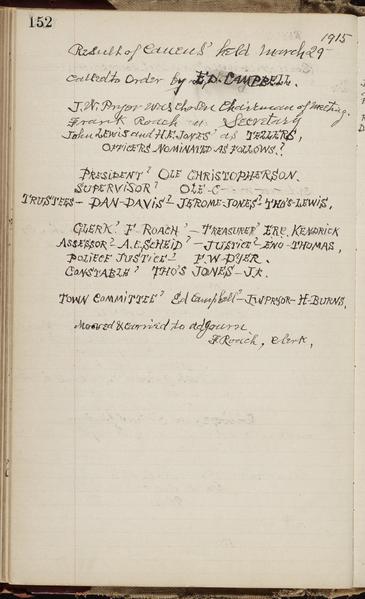 152
1915
Result of Caucus' held March 29
Called to Order by E.D. CAMPBELL.
J.W. Pryor was chosen Chairman of meeting.
Frank Roach as Secretary
John LEWIS and H.E. JONES' as TELLERS,
OFFICERS NOMINATED AS FOLLOWS.
PRESIDENT OLE CHRISTOPHERSON.
SUPERVISOR OLE C—
TRUSTEES— DAN DAVIS JEROME JONES THO'S LEWIS,
CLERK. F. ROACH — TREASURER KENDRICK
ASSESSOR A.E. SCHEID — JUSTICE ENO THOMAS,
POLIECE JUSTICE F.W. DYER.
CONSTABLE THO'S JONES JR.
TOWN COMMITTEE Ed Campbell — J.W PRYOR — H. BURNS,
Moved & carried to adjourn
F. Roach, Clerk,